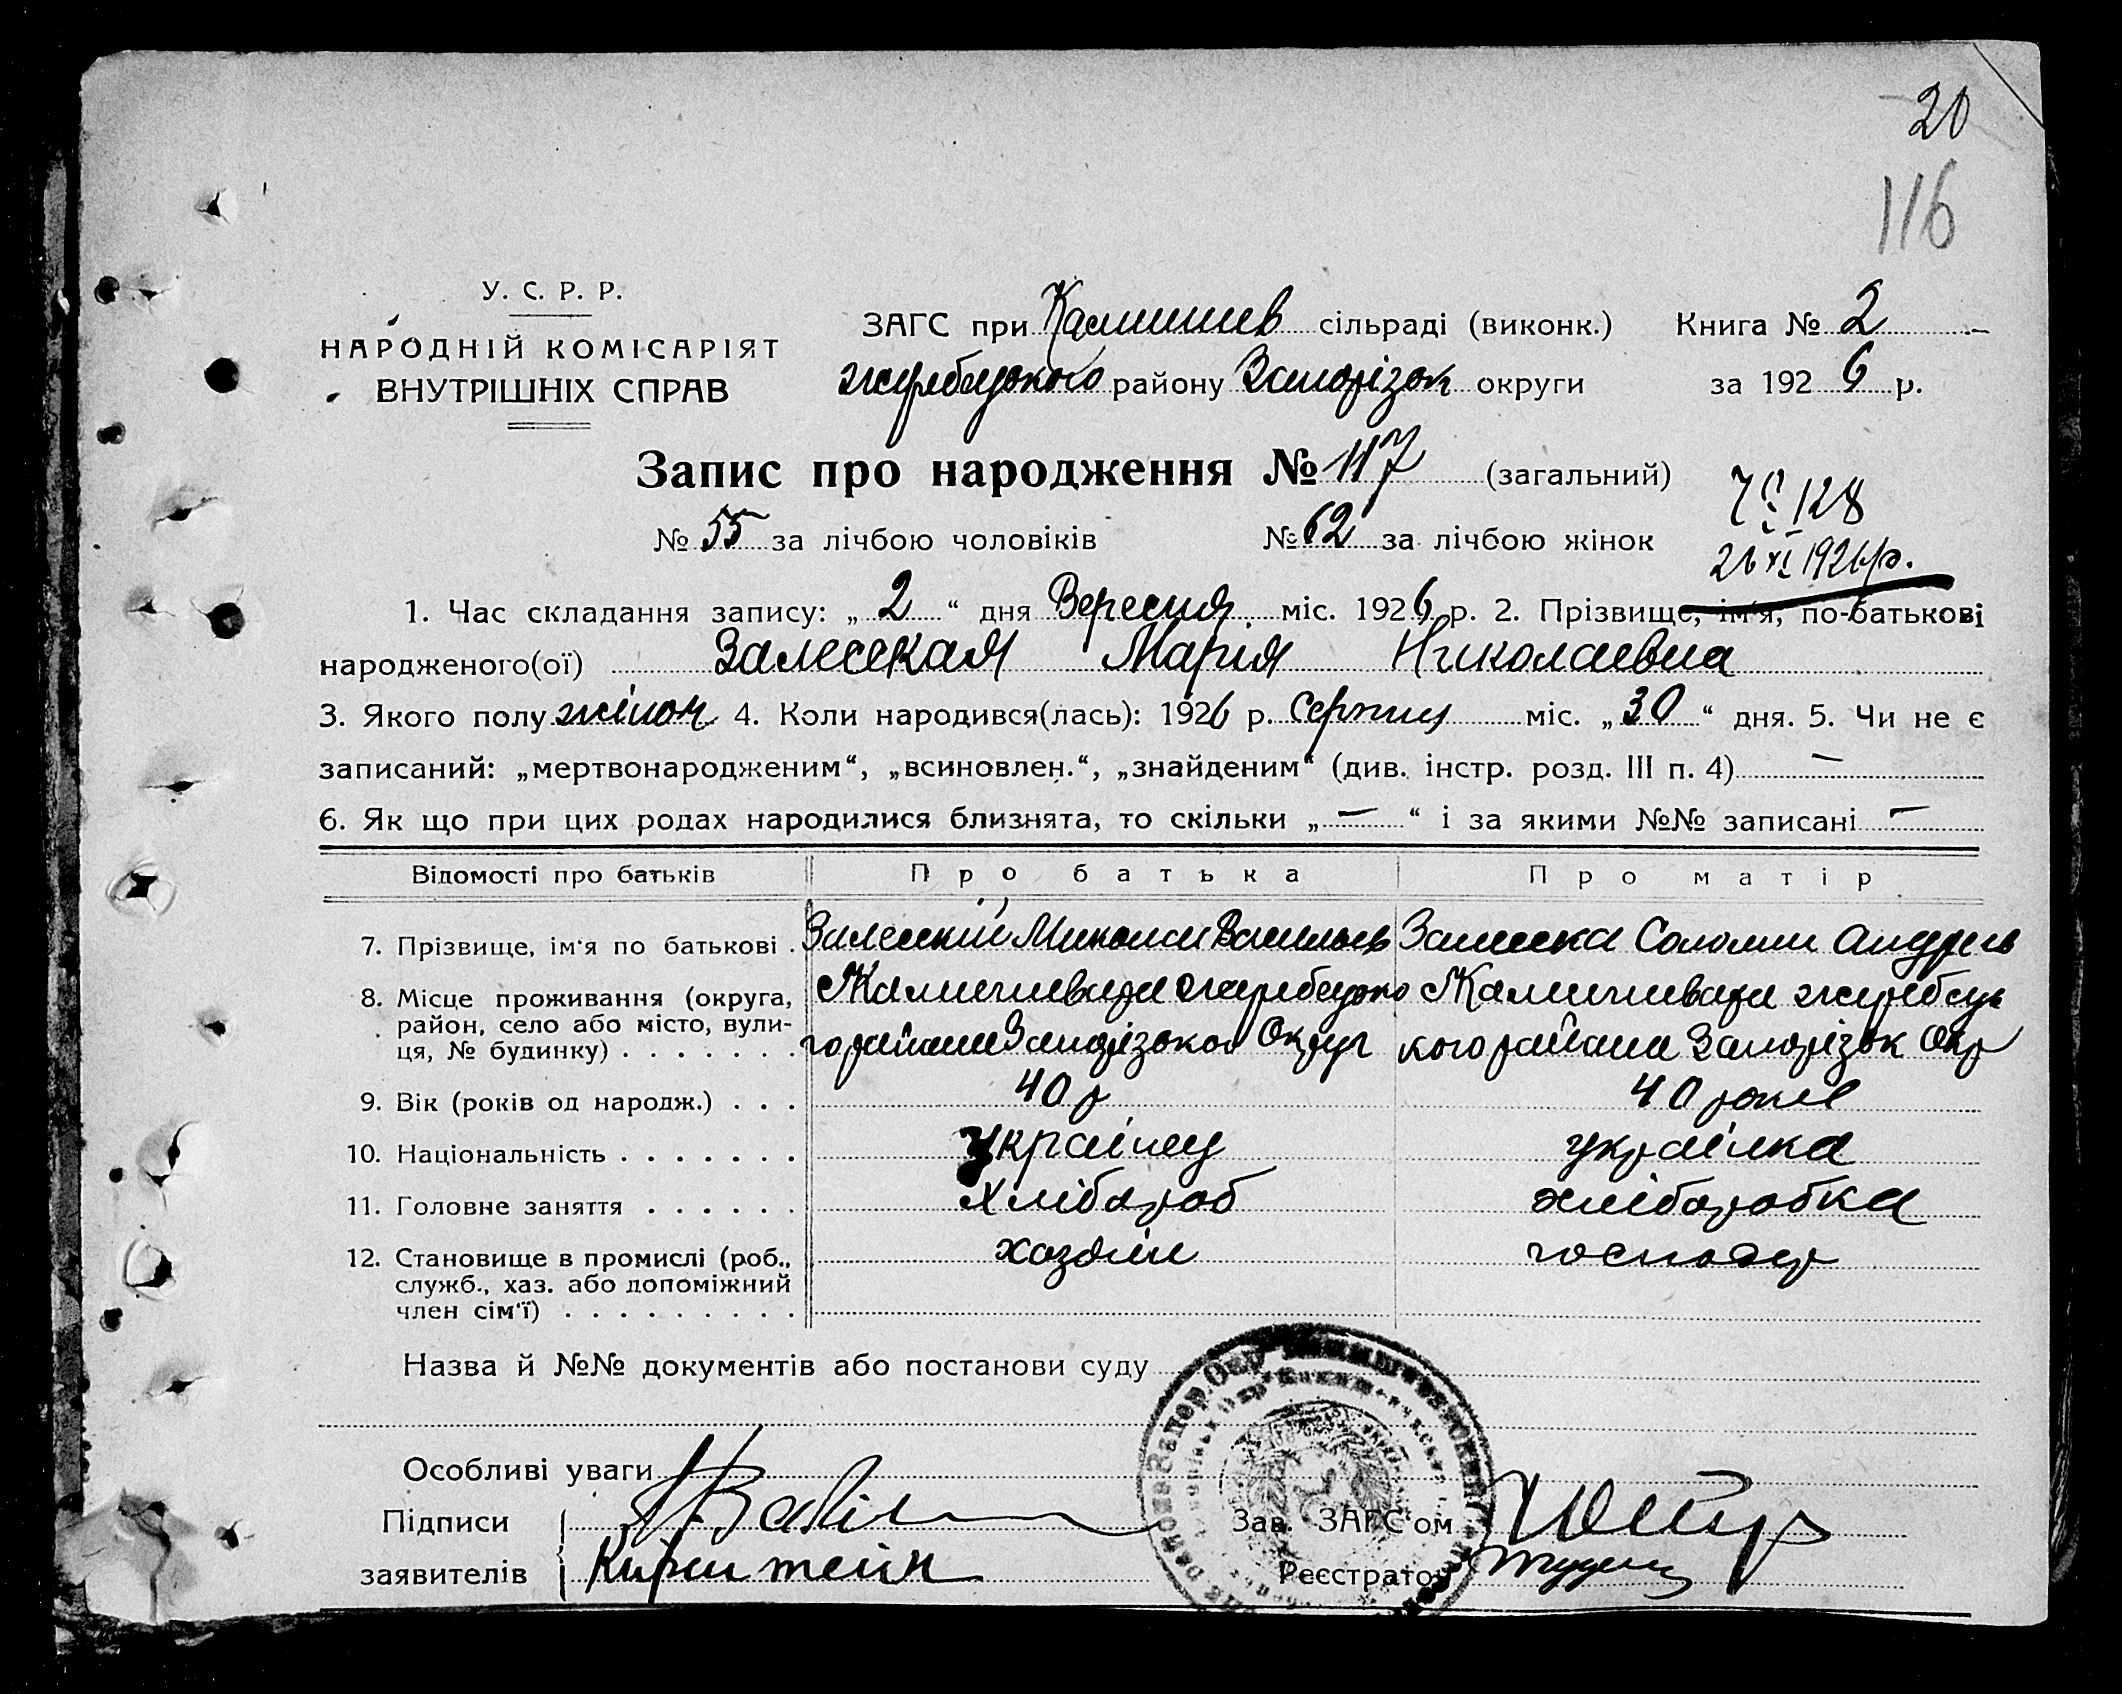 20
116
У. С. Р. Р.
НАРОДНІЙ КОМІСАРІЯТ
ВНУТРІШНІХ СПРАВ
ЗАГС при Камишев сільраді (виконк.) Книга № 2
жеребецького району Запорізьк округи за 192 6 р.
Запис про народження № 117 (загальний)
№ 55 за лічбою чоловіків № 62 за лічбою жінок
128
26 XI 1926 р.
1. Час складання запису: „ 2 “ дня Вересня міс. 1926 р. 2. Прізвище, ім'я, по-батькові
народженого(ої) Залесекая Марія Николаевна
3. Якого полу жіноч 4. Коли народився(лась): 1926 р. Серпня міс. „ 30 “ дня. 5. Чи не є
записаний: „мертвонародженим“, „всиновлен.“, „знайденим“ (див. інстр. розд. III п. 4) —
6. Як що при цих родах народилися близнята, то скільки „ — “ і за якими №№ записані —
Відомості про батьків Про батька Про матір
7. Прізвище, ім'я по батькові . Залеский Микола Васильев Залеска Соломия Андреев
8. Місце проживання (округа,
район, село або місто, вули-
ця, № будинку) . . . . . . .
го района Запорізькои Округ кого района Запорізьк Окр
9. Вік (років од народж.) . . . 40 р 40 років
10. Національність . . . . . . . українец українка
11. Головне заняття . . . . . . хлібороб хліборобка
12. Становище в промислі (роб., хозяін господар
служб., хаз. або допоміжний
член сім'ї) . . . . . . . . .
Назва й №№ документів або постанови суду
Особливі уваги
Підписи Зав. ЗАГС'ом
заявителів Кирштейн Реєстратор